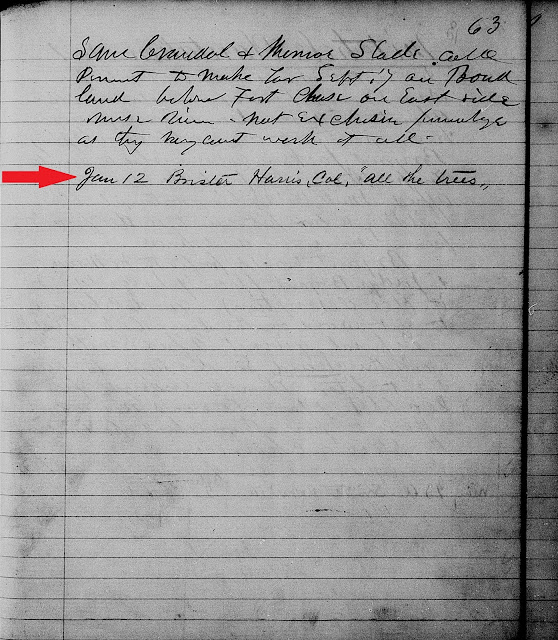 63
Sam & Monroe Slade.
Permit to make tar Sept. 17 on
land below Fort Chase on East side
River - not Exclusive privilege
as they work it all -
Jan 12 Brister Harris, Col, "all the trees,,